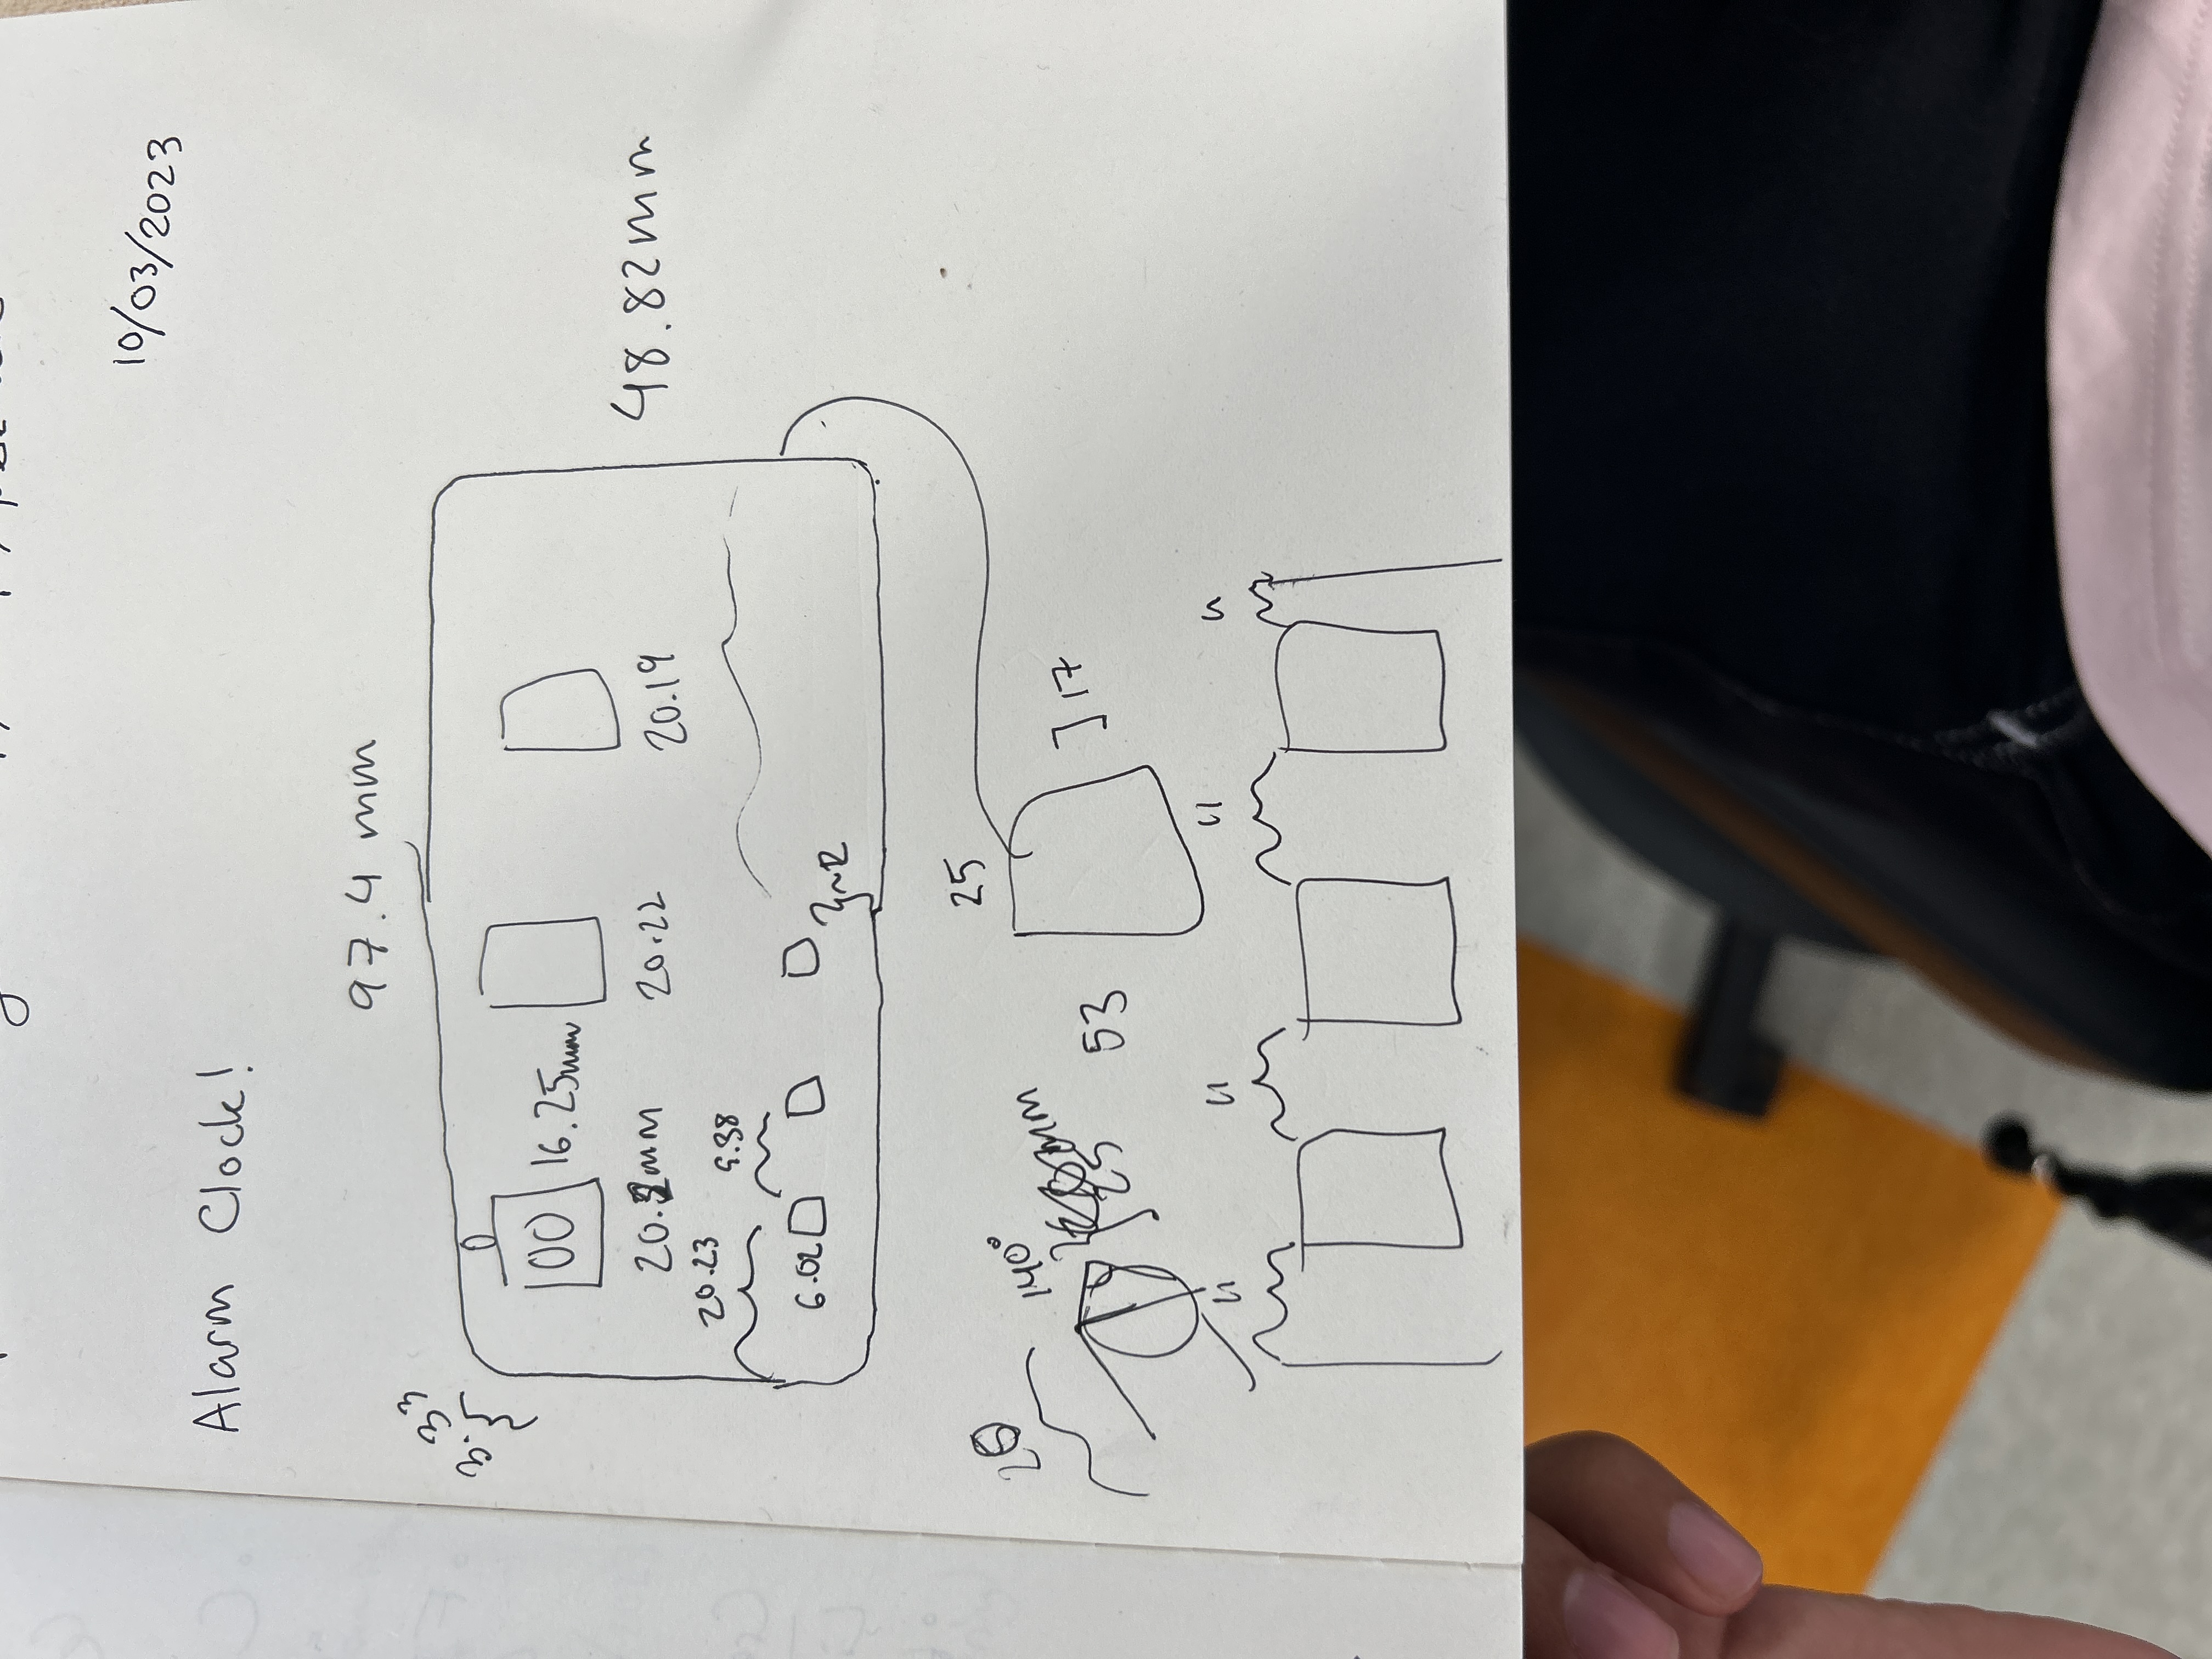 10/03/2023
Alarm Clock!
97.4 mm
3.33
00
16.25mm
20.2mm
20.22
20.19
48.82mm
20.23
9.38
6.02
25
140°
25
53
17
11
11
11
11